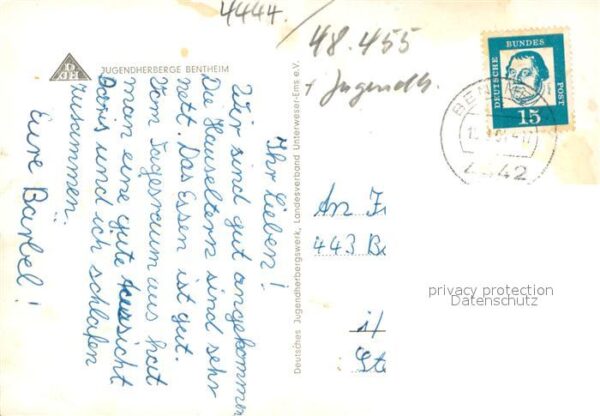 4444.
48.455
+ Jugendh.
JUGENDHERBERGE BENTHEIM
Ihr Lieben!
Wir sind gut angekommen
Die Hauseltern sind sehr
nett. Das Essen ist gut.
Vom Tagesraum aus hat
man eine gute Aussicht
Doris und ich schlafen
zusammen.
Eure Bärbel!
Deutsches Jugendherbergswerk, Landesverband Unterweser-Ems e.V.
DEUTSCHE BUNDES POST
15
4442
An F
443 B
privacy protection
Datenschutz